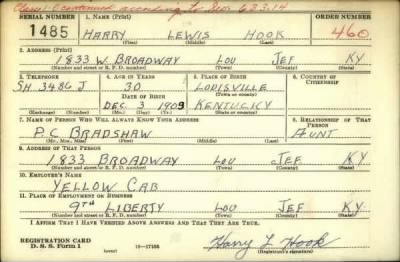 Class I-C continued according to Mem 623.14
SERIAL NUMBER 1. NAME (Print) ORDER NUMBER
1485 HARRY LEWIS HOOK 460
(First) (Middle) (Last)
2. ADDRESS (Print)
1833 W. BROADWAY LOU JEF KY
(Number and street or R. F. D. number) (Town) (County) (State)
3. TELEPHONE 4. AGE IN YEARS 5. PLACE OF BIRTH 6. COUNTRY OF CITIZENSHIP
SH 3486 J 30 LOUISVILLE
DATE OF BIRTH (Town or county)
DEC 3 1909 KENTUCKY
(Mo.) (Day) (Yr.) (State or country)
7. NAME OF PERSON WHO WILL ALWAYS KNOW YOUR ADDRESS 8. RELATIONSHIP OF THAT PERSON
P.C BRADSHAW AUNT
(Mr., Mrs., Miss) (First) (Middle) (Last)
9. ADDRESS OF THAT PERSON
1833 BROADWAY LOU JEF KY
(Number and street or R. F. D. number) (Town) (County) (State)
10. EMPLOYER'S NAME
YELLOW CAB
11. PLACE OF EMPLOYMENT OR BUSINESS
9TH LIBERTY LOU JEF KY
(Number and street or R. F. D. number) (Town) (County) (State)
I AFFIRM THAT I HAVE VERIFIED ABOVE ANSWERS AND THAT THEY ARE TRUE.
REGISTRATION CARD
D. S. S. Form 1 (over) 16—17105 Harry L Hook
(Registrant's signature)